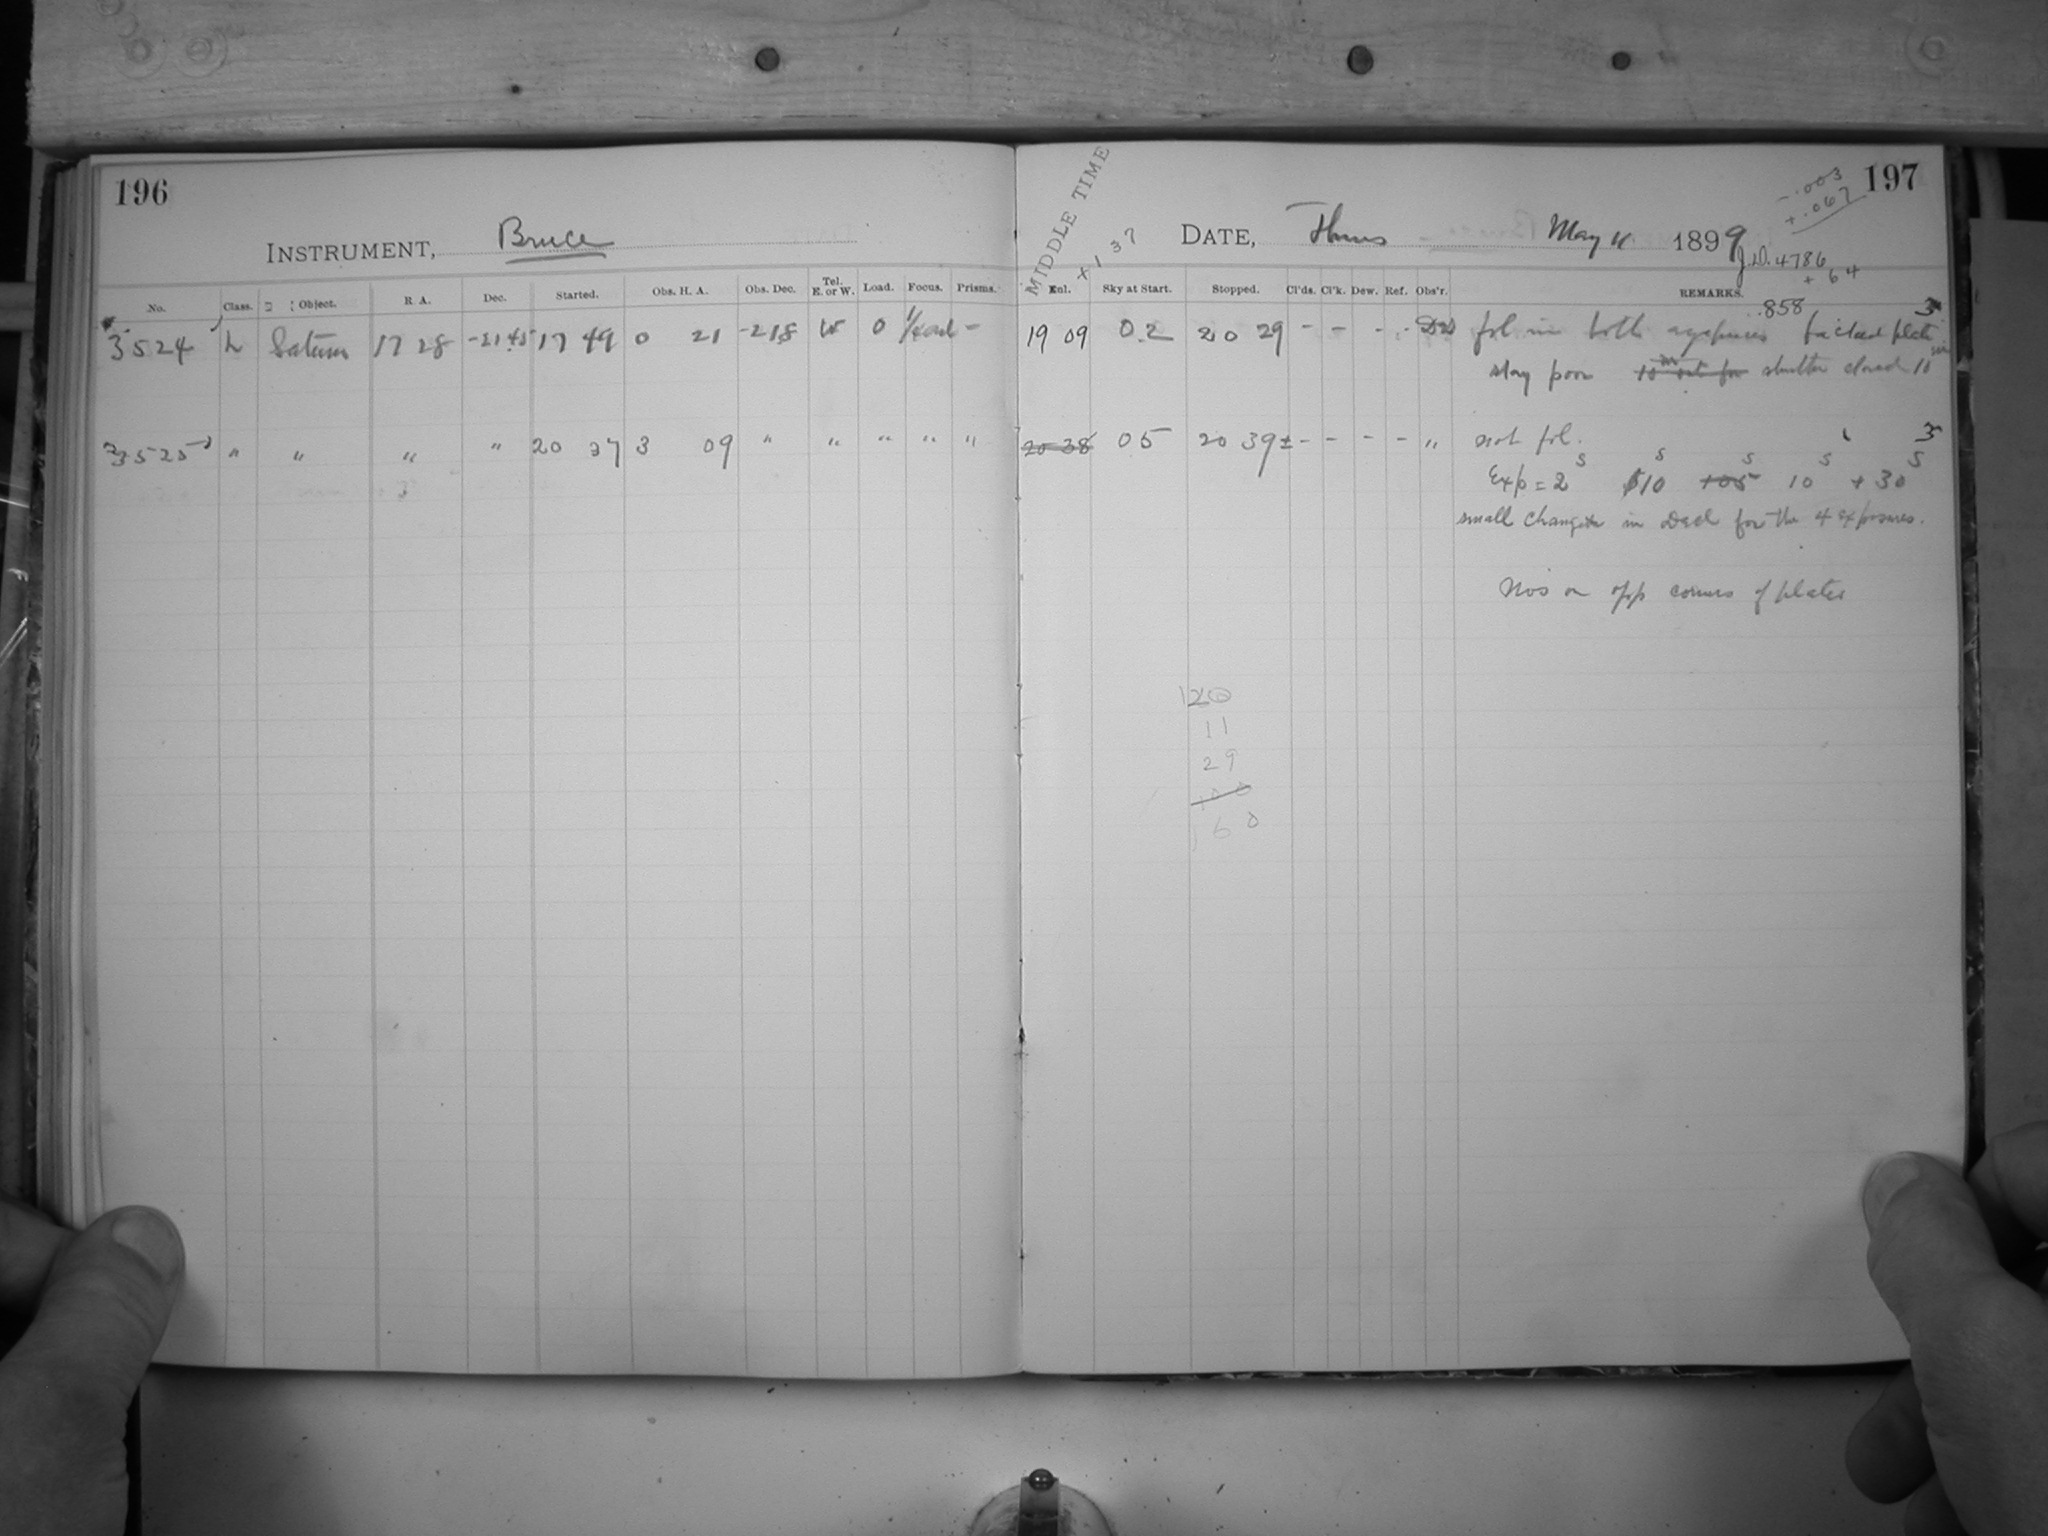 196
INSTRUMENT, Bruce
No. Class. Object. R A. Dec. Started. Obs. H. A. Obs. Dec. Tel. E. or W. Load. Focus. Prisms.
3524 L Saturn 17 28 -21 45 17 49 0 21 -21.8 W 0 -
3525 " " " " 20 37 3 09 " " " " "
MIDDLE TIME
+ 137
DATE, Thurs May 11 1899
197
-.003
+.067
J.D. 4786
+ 64
.858
Enl. Sky at Start. Stopped. Cl'ds. Cl'k. Dew. Ref. Obs'r. REMARKS.
19 09 02 20 29 - - - - fol in both backed plate 3
slay poor shutter closed 10 m
20 38 05 20 39 ± - - - - " not fol. 3
Exp = 2 s 10 s +05 s 10 s + 30 s
small changes in Decl for the 4 exposures.
Nos on opp corners of plates
120
11
29
160